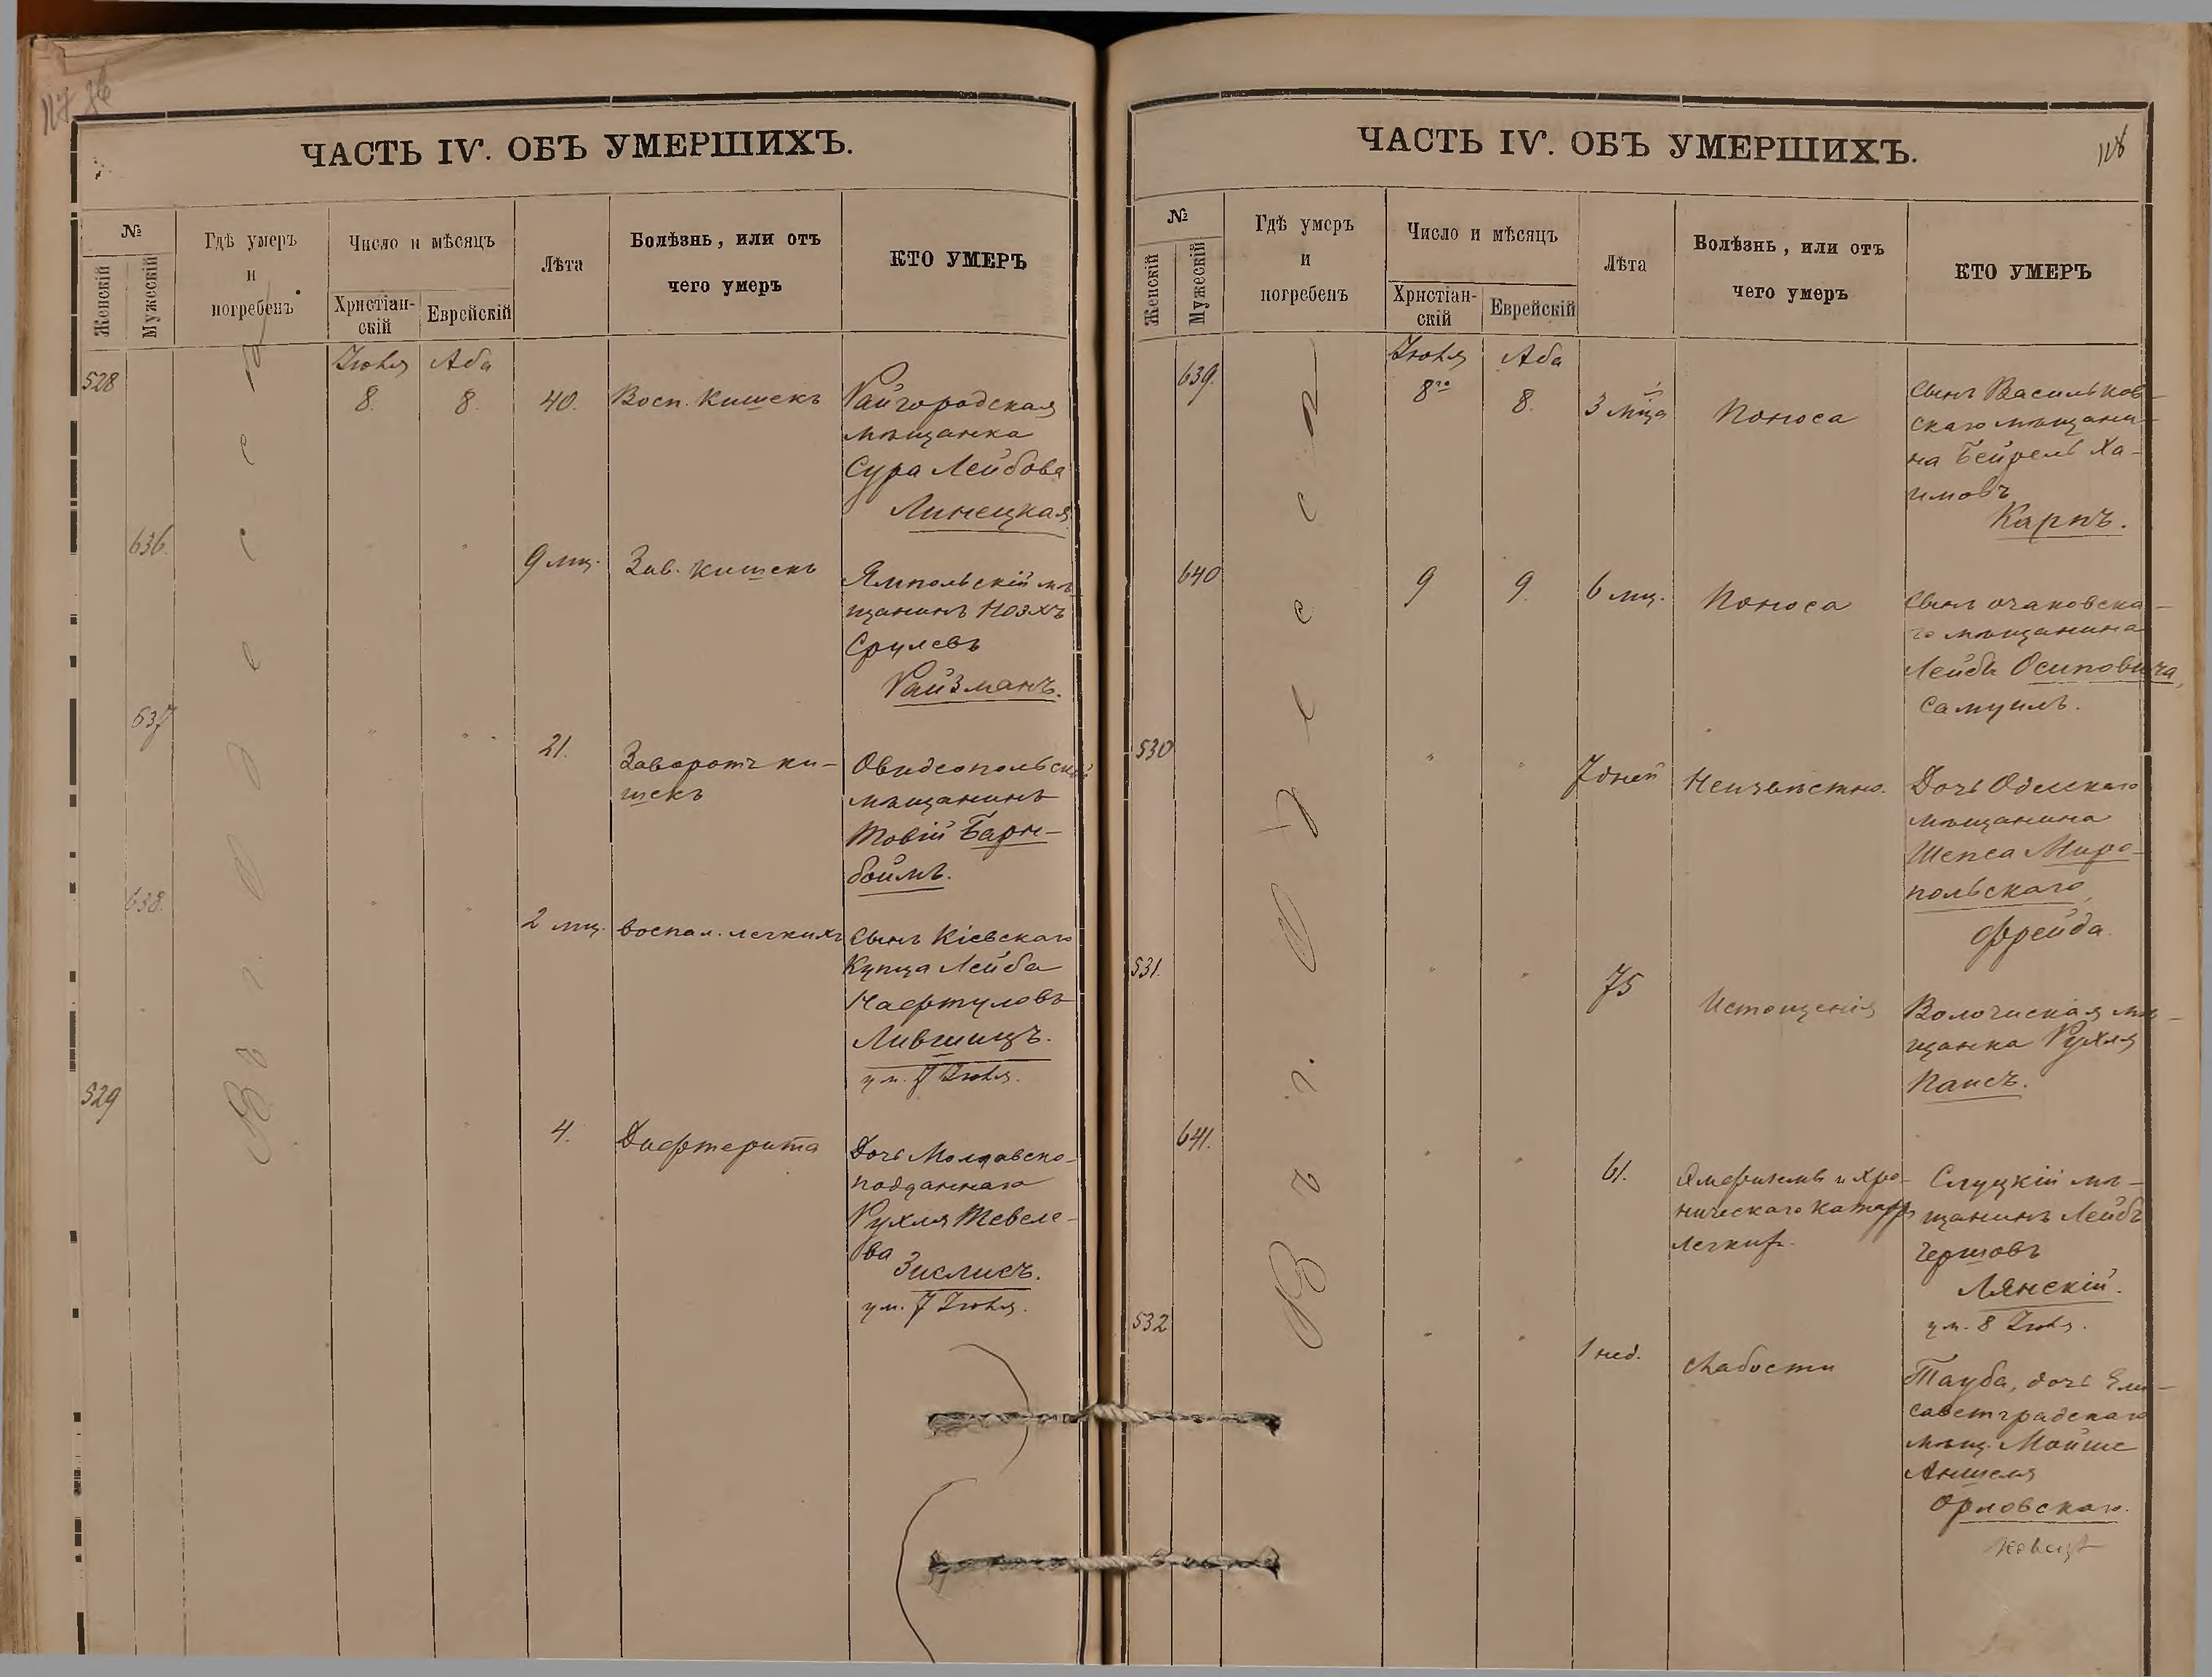 ЧАСТЬ IV. ОБЪ УМЕРШИХЪ.
№
Женскій
Мужескій
Гдѣ умеръ
и
погребенъ
Число и мѣсяцъ
Христіан-
скій
Еврейскій
Лѣта
Болѣзнь, или отъ
чего умеръ
КТО УМЕРЪ
Въ г. Одессѣ
Іюля Аба
528 8. 8. 40. Восп. Кишекъ Райгородская
мѣщанка
Сура Лейбова
Линецкая
636. 9 мц. Зав. кишекъ Ямпольскій мѣ
щанинъ Нозхъ
Срулевъ
Райзманъ.
637 21. Заворотъ ки-
шекъ
Овидіопольскій
мѣщанинъ
Товій Барн-
боймъ.
638. 2 мц. воспал. легкихъ Сынъ Кіевскаго
Купца Лейба
Нафтуловъ
Лившицъ.
ум. 7 Іюля.
529 4. Дифтерита Дочь Молдавско-
подданнаго
Рухля Тевеле-
ва
Зислисъ.
ум. 7 Іюля.
ЧАСТЬ IV. ОБЪ УМЕРШИХЪ.
118
№
Женскій
Мужескій
Гдѣ умеръ
и
погребенъ
Число и мѣсяцъ
Христіан-
скій
Еврейскій
Лѣта
Болѣзнь, или отъ
чего умеръ
КТО УМЕРЪ
Въ г. Одессѣ
Іюля Аба
639. 8го 8. 3 мца Поноса Сынъ Васильков-
скаго мѣщани-
на Бейрелъ Ха-
имовъ
Карпъ.
640 9 9. 6 мц. Поноса Сынъ очаковска-
го мѣщанина
Лейбы Осиповича,
Самуилъ.
530 7 дней Неизвѣстно. Дочь Одесскаго
мѣщанина
Шепса Миро-
польскаго,
Фрейда.
531. 75 Истощенія Волочиская мѣ-
щанка Рухля
Паисъ.
641. 61. и хро-
ническаго Катарр
легких.
Слуцкій мѣ-
щанинъ Лейбъ
Гершовъ
Лянскій.
ум. 8 Іюля.
532 1 нед. Слабости Тауба, дочь Ели-
саветградскаго
мѣщ. Мойше
Аншеля
Орловскаго.